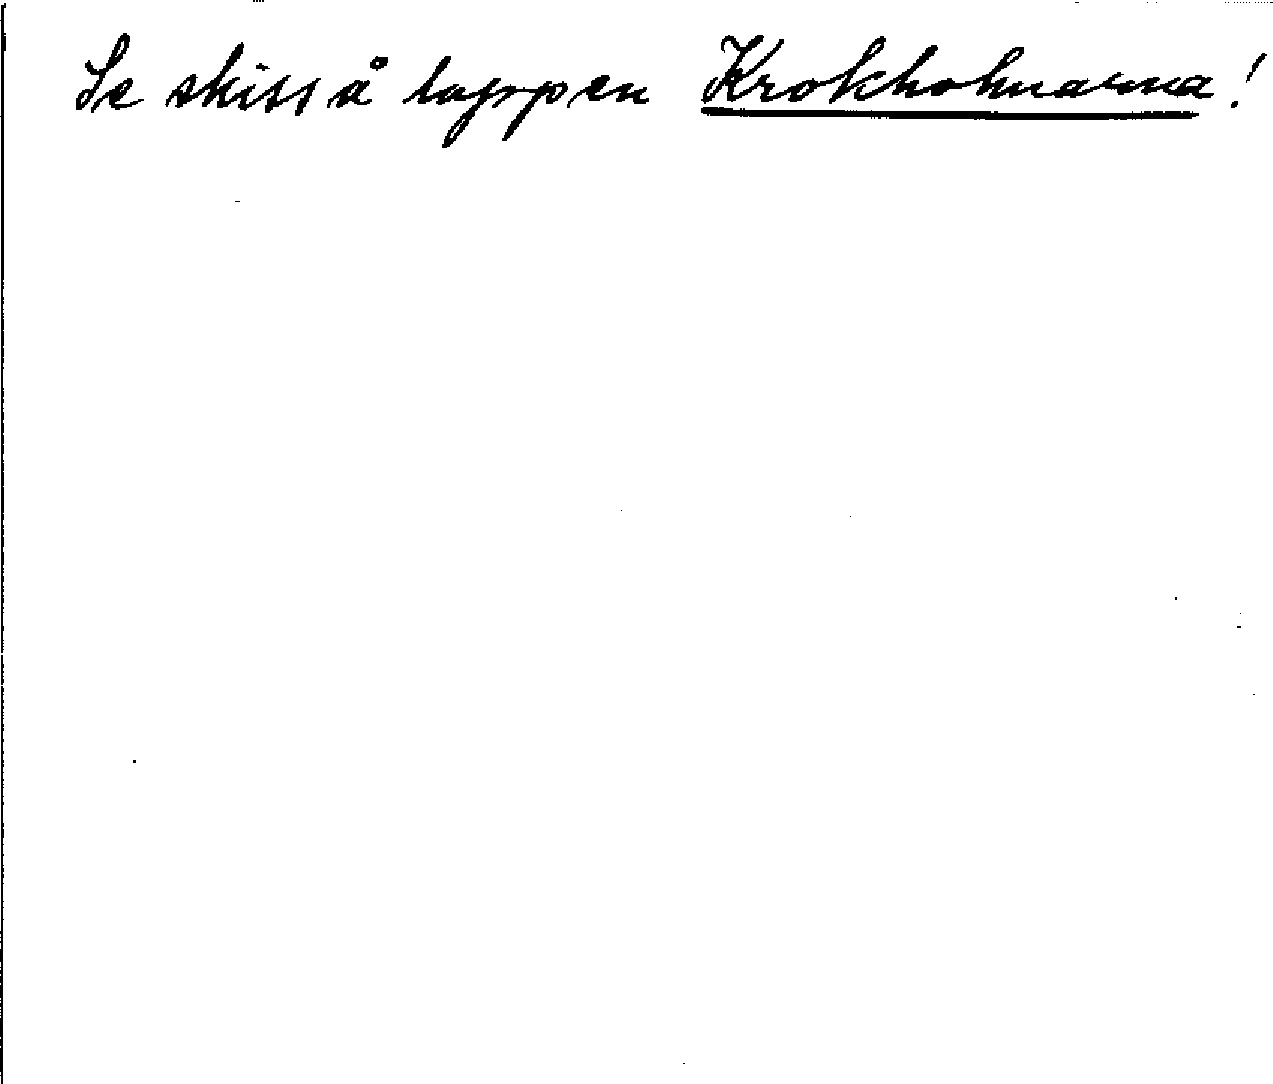 Se skiss å lappen Krokholmarna!